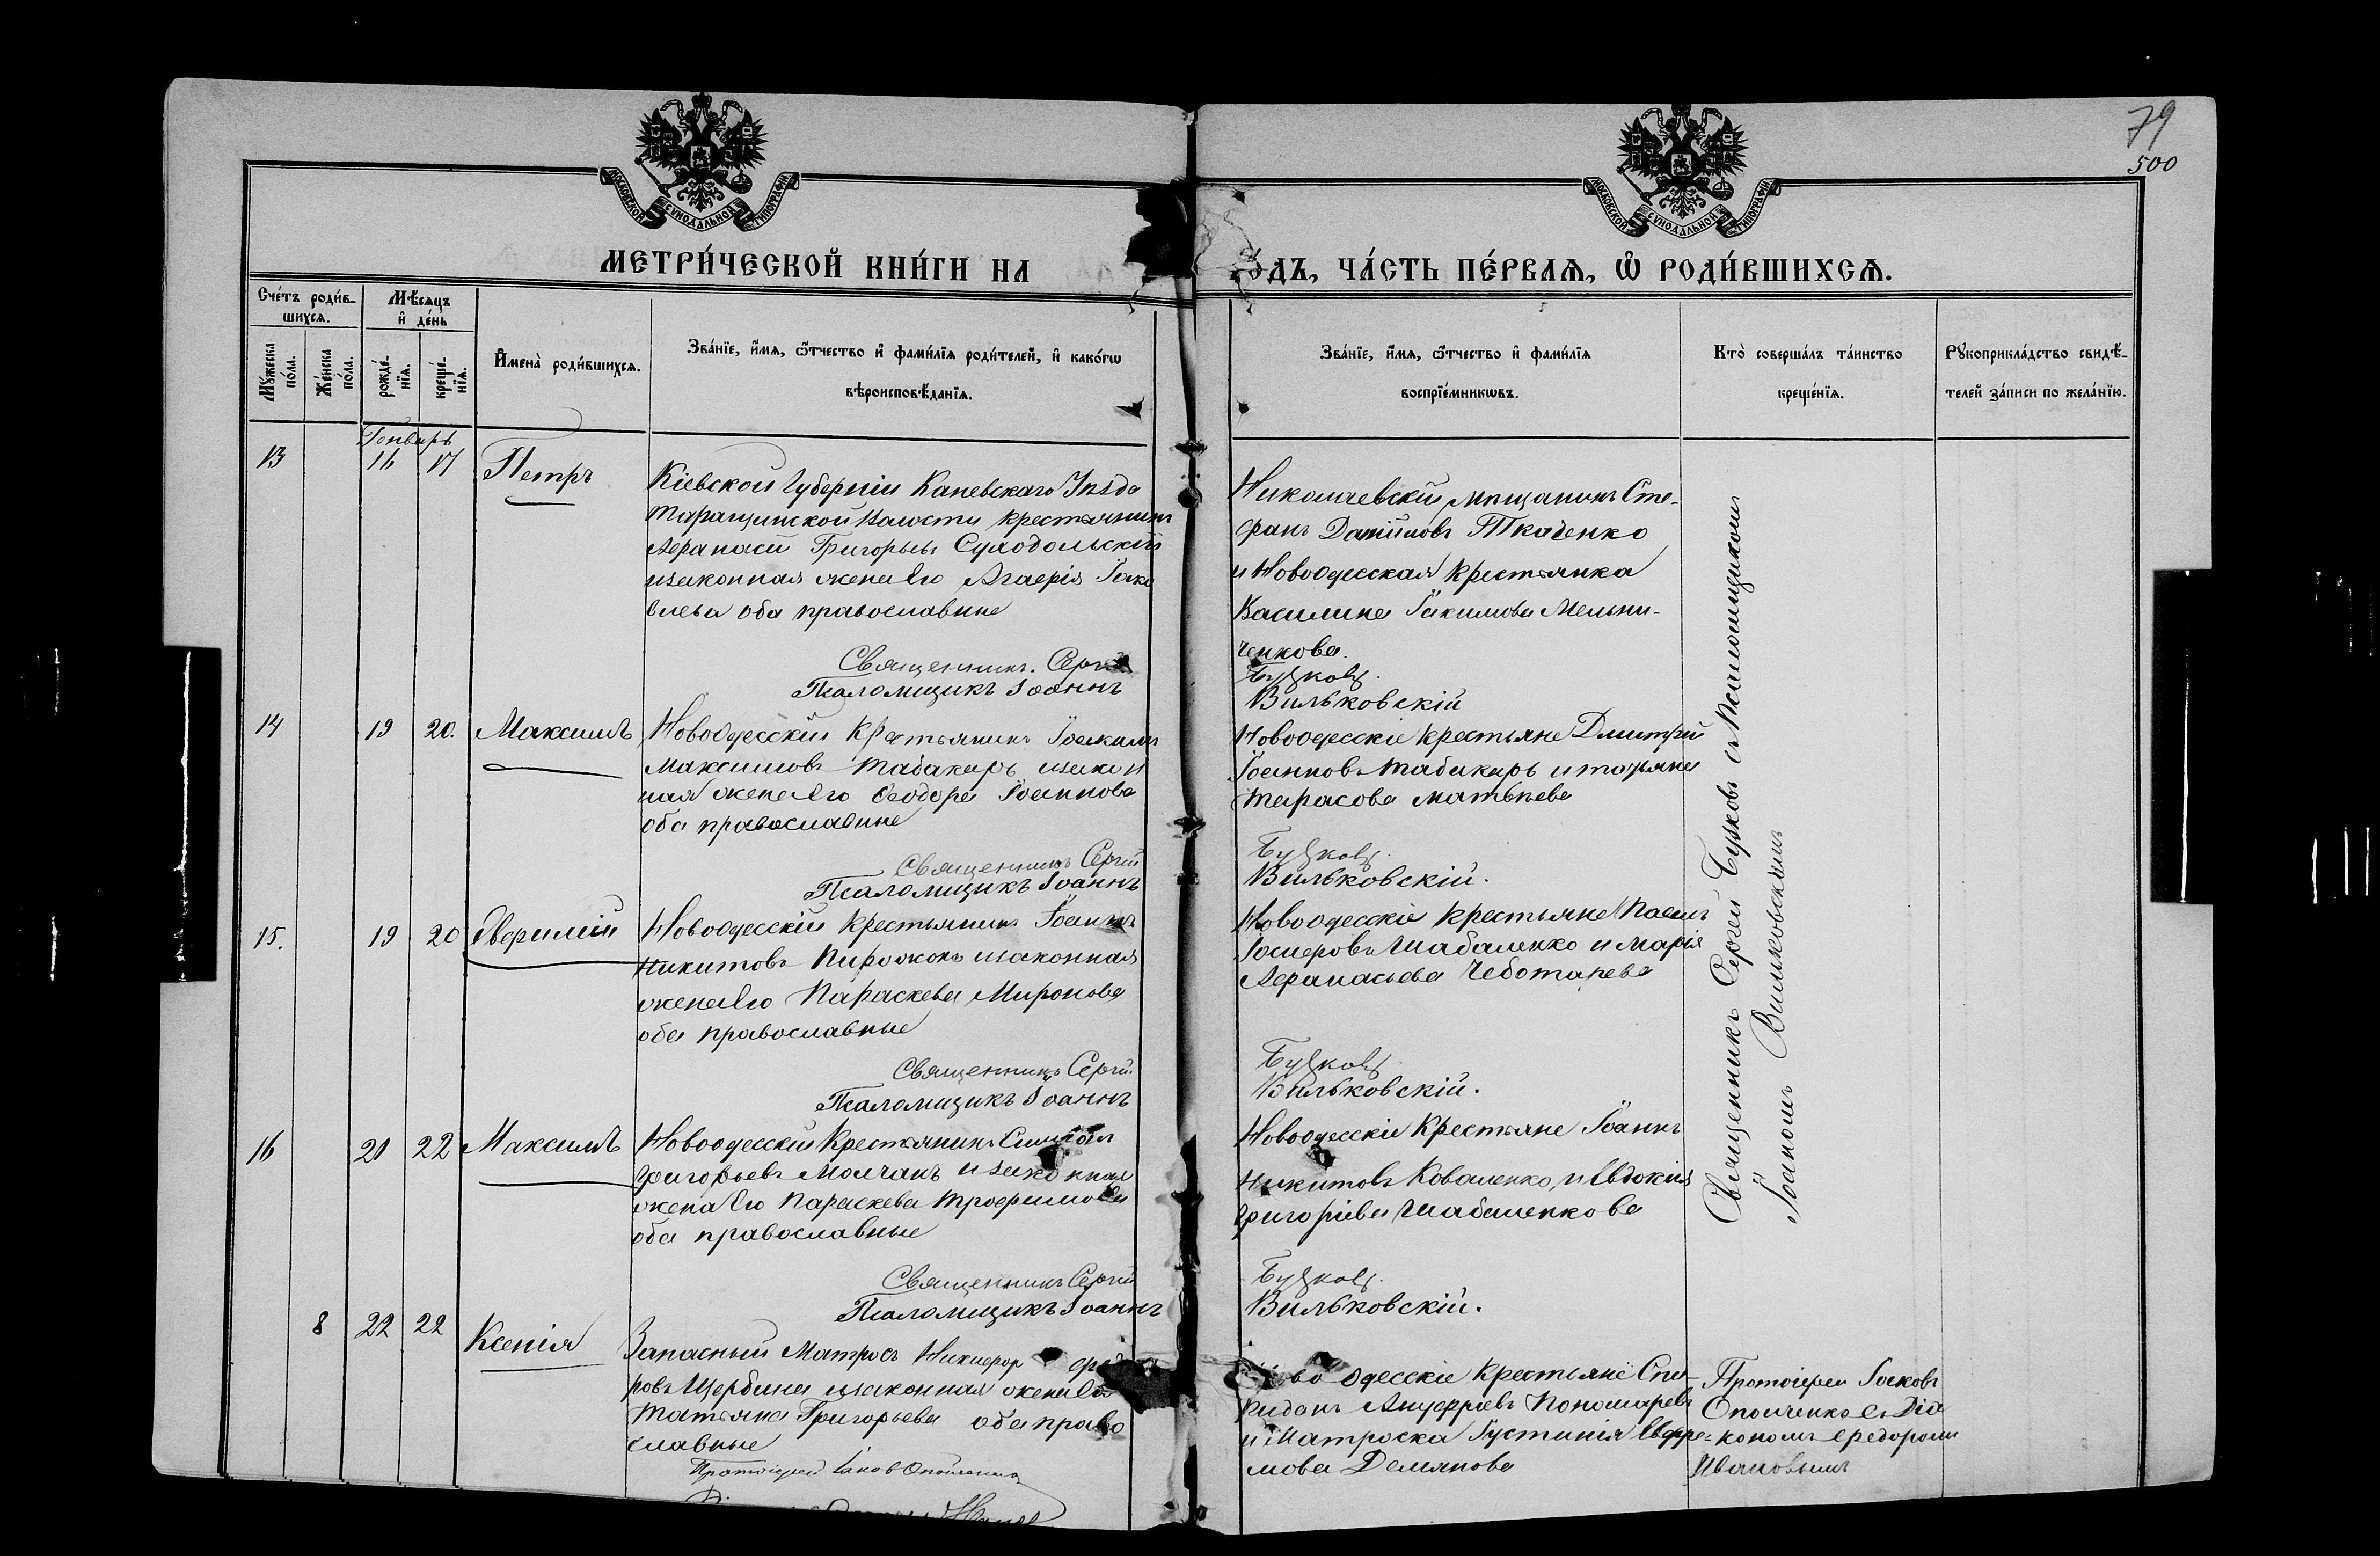 79
500
МОСКОВСКОЙ СѴНОДАЛЬНОЙ ТИПОГРАФІИ
МОСКОВСКОЙ СѴНОДАЛЬНОЙ ТИПОГРАФІИ
МЕТРИ́ЧЕСКОЙ КНИ́ГИ НА
О́ДЪ, ЧА́СТЬ ПЕ́РВАЯ, Ѡ РОДИ́ВШИХСЯ.
Сче́тъ роди́в-
шихся.
Мѣ́сяцъ
и де́нь
Мꙋ́жеска по́ла.
Же́нска по́ла.
рожде́-
нїя.
креще́-
нїя.
Имена̀ роди́вшихся.
Зва́нїе, и́мя, ѻ́тчество и фами́лїя роди́телей, и како́гѡ
вѣроисповѣ́данїя.
Зва́нїе, и́мя, ѻ́тчество и фами́лїя
воспрїе́мникѡвъ.
Кто̀ соверша́лъ та́инство
креще́нїя.
Рꙋкоприкла́дство свидѣ́-
телей за́писи по жела́нїю.
Генварь
13 16 17 Петръ
Кіевской Губерніи Каневскаго Уѣзда
Таращинской Волости крестьянинъ
Афанасій Григорьевъ Суходольскій
изаконная жена его Агафія Іако
влева оба православные
Священникъ Сергій
Псаломщикъ Іоаннъ
Николаевскій мѣщанинъ Сте-
фанъ Даниловъ Ткаченко
и Новоодесская крестьянка
Василина Іакимова Мельни-
ченкова.
Буцковъ.
Вильковскій
14 19 20. Максимъ
Новоодесскій крестьянинъ Іоакимъ
Максимовъ Табакарь изакон
ная жена его Феодора Іоаннова
оба православные
Священникъ Сергій
Псаломщикъ Іоаннъ
Новоодесскіе крестьяне Дмитрій
Іоанновъ Табакарь и татьяна
тарасова матвѣева
Буцковъ.
Вильковскій.
15. 19 20 Аверилій
Новоодесскій крестьянинъ Іоаннъ
Никитовъ Пирожокъ изаконная
жена его Параскева Миронова
оба православные
Священникъ Сергій
Псаломщикъ Іоаннъ
Новоодесскіе крестьяне Павелъ
Іосифовъ Шабаленко и Марія
Афанасьева Чеботарева
Буцковъ
Вильковскій.
16 21 22 Максимъ
Новоодесскій крестьянинъ
Григорьевъ Молчанъ и законная
жена его Параскева Трофимова
оба православные
Священникъ Сергій
Псаломщикъ Іоаннъ
Новоодесскіе крестьяне Іоаннъ
Никитовъ Коваленко, и Евдокія
Григоріева Шабаленкова
Буцковъ.
Вильковскій.
Священникъ Сергей Буцковъ съ Псаломщикомъ
Іоаномъ Вильковскимъ
8 22 22 Ксенія
Запасный Матросъ Никифор
ровъ Щербина изаконная жена его
Татьяна Григорьева оба право
славные
Протоіерей Іаков Опойченко
одесскіе Крестьяне Спи-
ридонъ Ануфріевъ Пономаревъ
и Матроска Густинія Евфре-
мова Демянова
Протоіерей Іаковъ
Опойченко съ Діа
кономъ Федоромъ
Ивановымъ